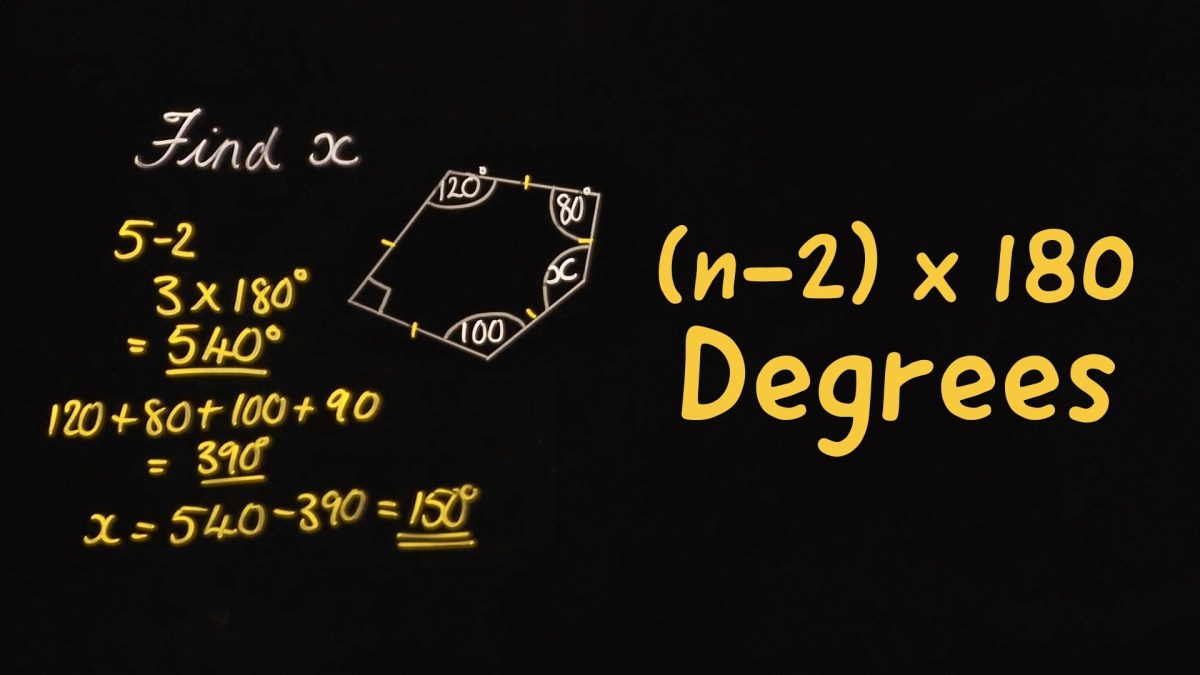 Find x
5-2
3 x 180°
= 540°
120+80+100+90
= 390°
x = 540-390 = 150°
120°
80°
x
100
(n-2) x 180
Degrees